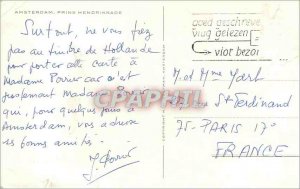 AMSTERDAM, PRINS HENDRINKADE
Surtout, ne vous fiez
pas au timbre de Hollande
pour porter cette carte à
Madame Poirier car c'est
justement Madame
qui, pour quelques jours à
Amsterdam, vous adresse
ses bonnes amitiés.
goed geschreven
vlug gelezen
vlot bezor
M. et Mme
rue St Ferdinand
75-PARIS 17°
FRANCE
CPARTI